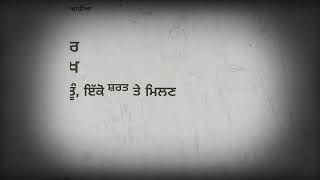 ਰ
ਖ
ਤੂੰ, ਇੱਕੋ ਸ਼ਰਤ ਤੇ ਮਿਲਣ